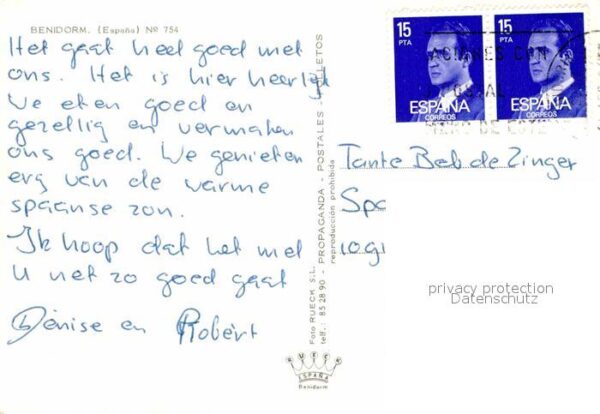 BENIDORM. (España) Nº 754
Het gaat heel goed met
ons. Het is hier heerlijk
We eten goed en
gezellig en vermaken
ons goed. We genieten
erg van de warme
spaanse zon.
Ik hoop dat het met
U net zo goed gaat
Denise en Robèrt
Foto RUECK S.L. - PROPAGANDA - POSTALES
telf.: 85 28 90 - reproducción prohibida
RUECK
ESPAÑA
Benidorm
15
PTA
ESPAÑA
CORREOS
15
PTA
ESPAÑA
CORREOS
Tante Beb de Zinger
Spa
1091
privacy protection
Datenschutz